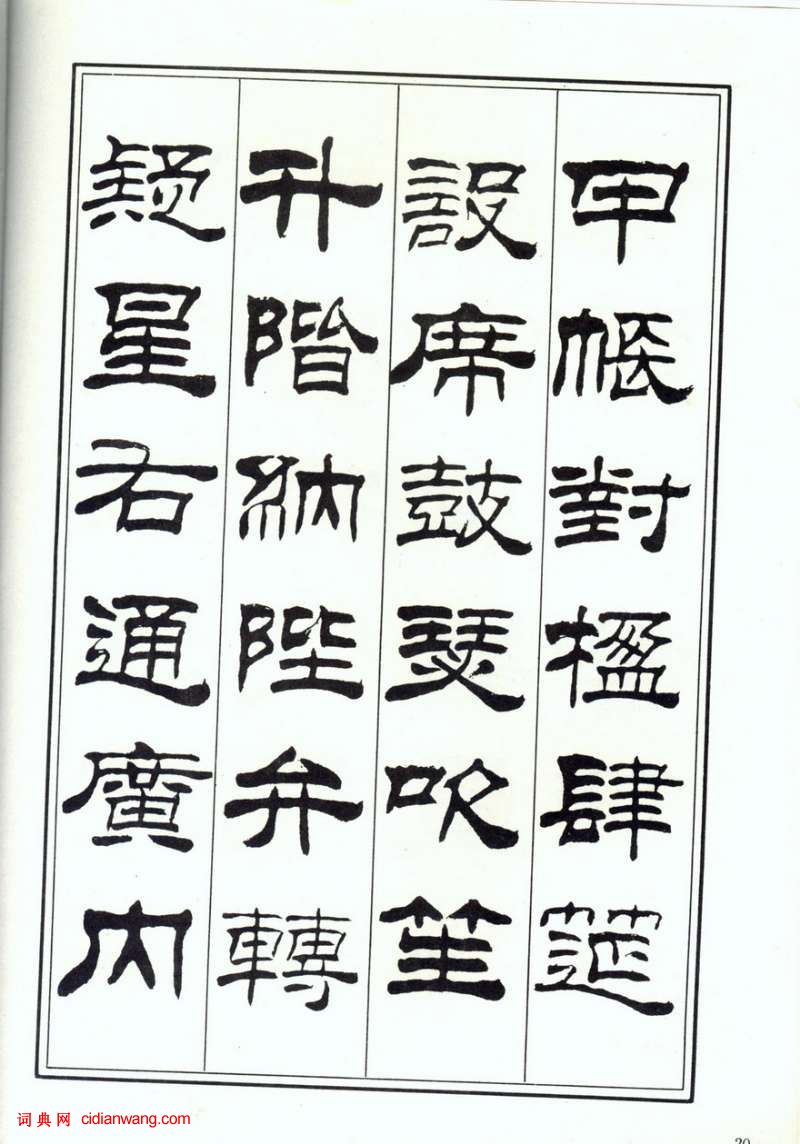 甲帳對楹肆筵
設席鼓瑟吹笙
升階納陛弁轉
疑星右通廣內
词典网 cidianwang.com
20